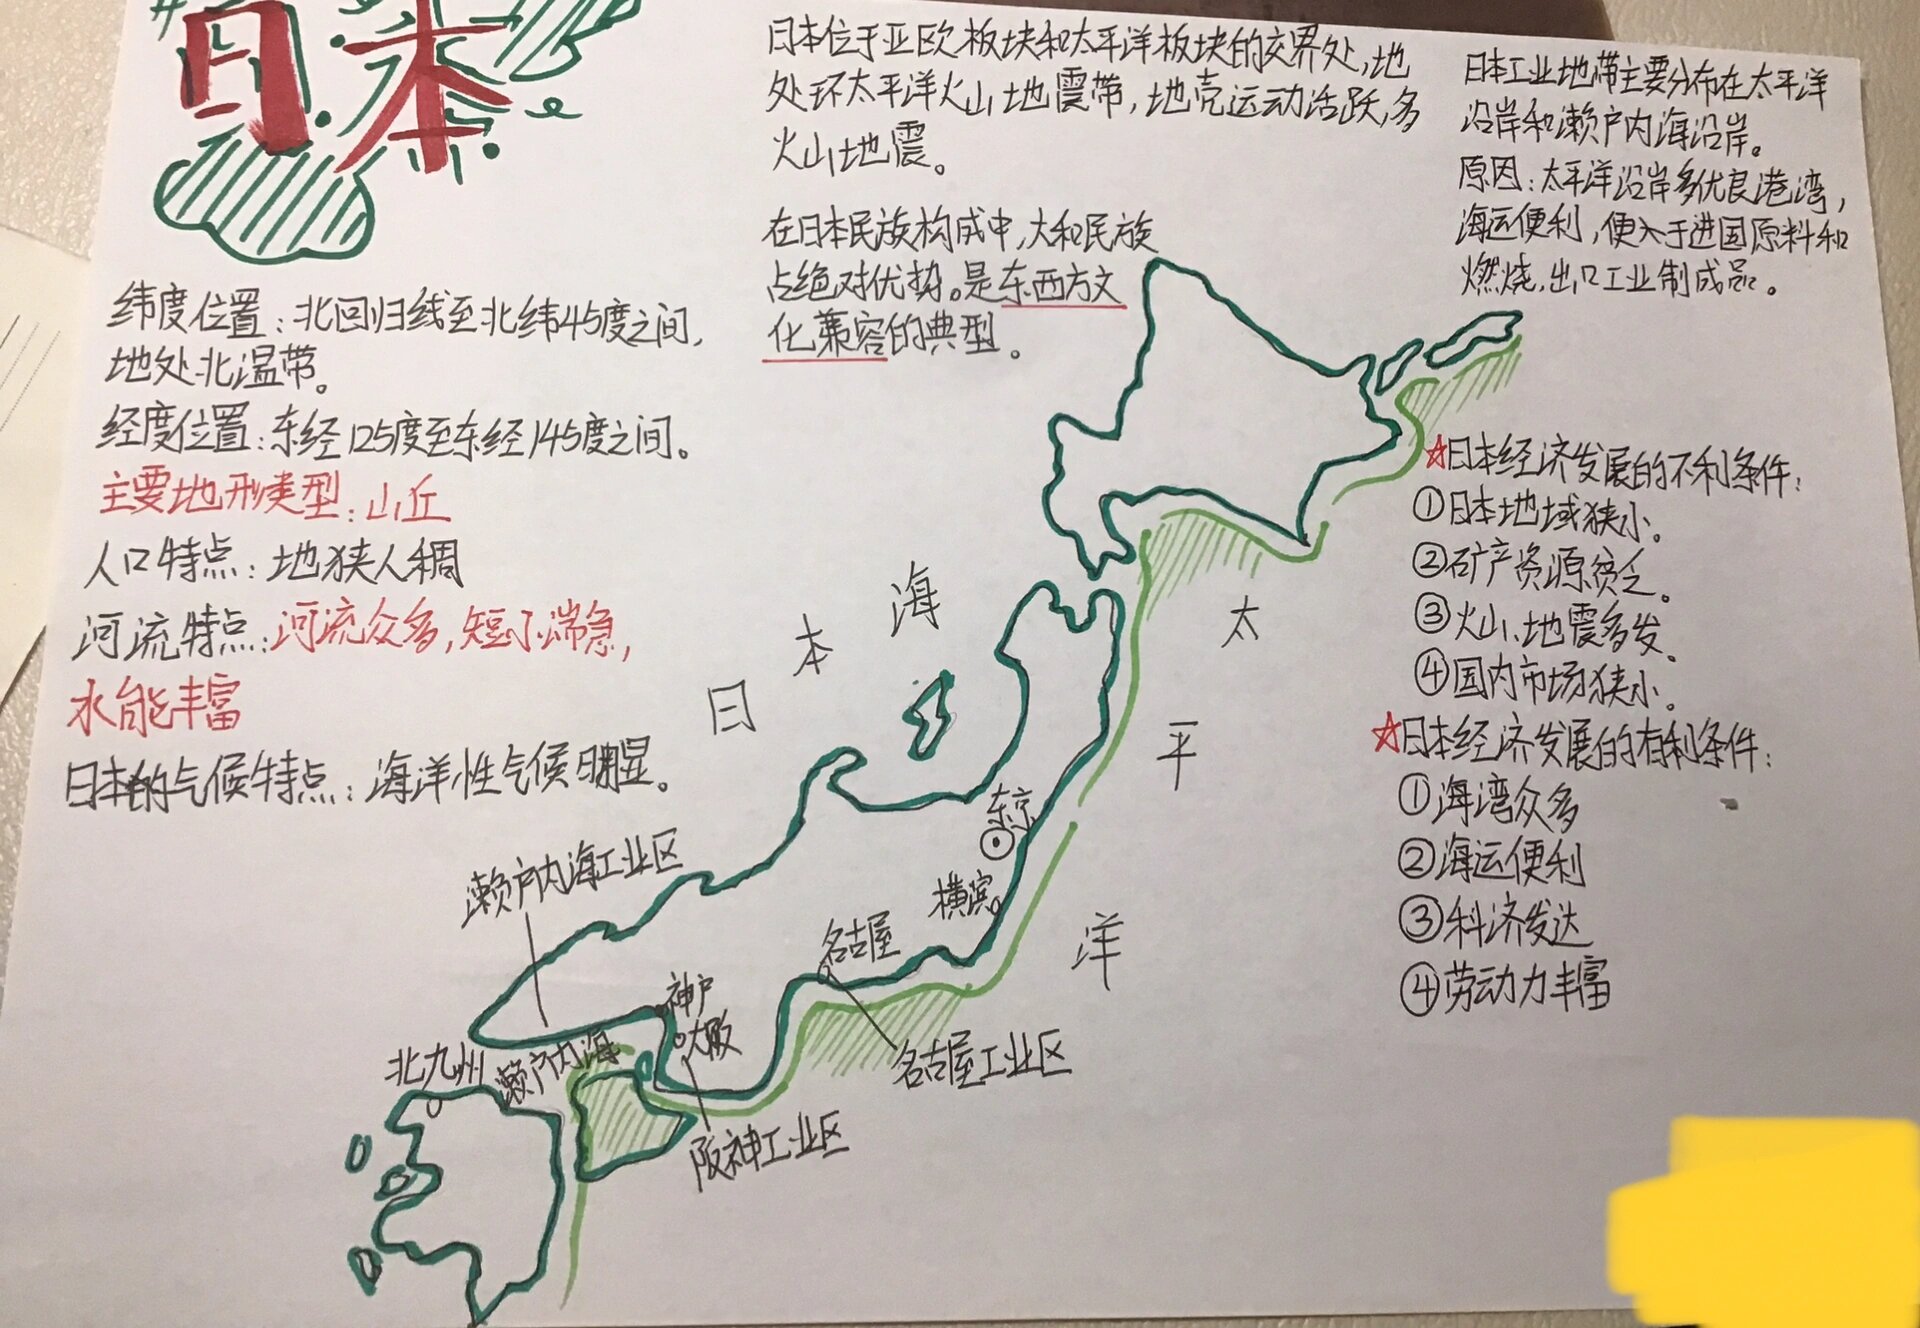 日本
日本位于亚欧板块和太平洋板块的交界处,地
处环太平洋火山地震带,地壳运动活跃,多
火山地震。
在日本民族构成中,大和民族
占绝对优势。是东西方文
化兼容的典型。
日本工业地带主要分布在太平洋
沿岸和濑户内海沿岸。
原因:太平洋沿岸多优良港湾,
海运便利,便入于进国原料和
燃烧.出口工业制成品。
纬度位置:北回归线至北纬45度之间,
地处北温带。
经度位置:东经125度至东经145度之间。
主要地形类型:山丘
人口特点:地狭人稠
河流特点:河流众多,短小湍急,
水能丰富
日本的气候特点:海洋性气候明显。
☆日本经济发展的不利条件:
①日本地域狭小。
②矿产资源贫乏。
③火山、地震多发。
④国内市场狭小。
☆日本经济发展的有利条件:
①海湾众多
②海运便利
③科济发达
④劳动力丰富
日本海
太平洋
东京
横滨
名古屋
名古屋工业区
濑户内海工业区
神户
大阪
阪神工业区
濑户内海
北九州